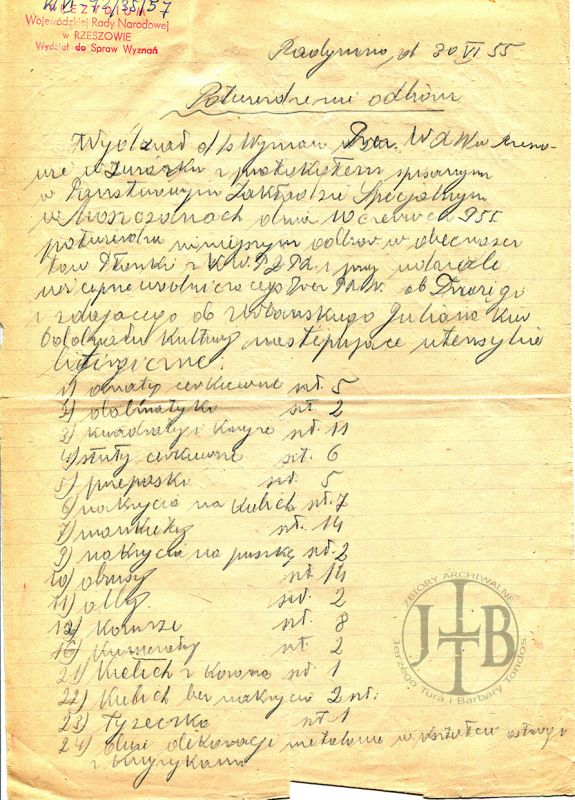 Wojewódzkiej Rady Narodowej
w RZESZOWIE
Wydział do Spraw Wyznań
Radymno, d 30 VI 55
Potwierdzenie odbioru
Wydział d/s Wyznań Prez. W.R.N. w
w związku z protokołem spisanym
w Państwowym Zakładzie Specjalnym
w Moszczanach dnia 10 czerwca 955
potwierdza niniejszym odbiór w obecności
tow. z K.W. P.Z.P.R. i przy udziale
i zdającego ob Juliana Kier
Oddziału Kultury następujące utensylia
liturgiczne:
1) ornaty cerkiewne szt. 5
2) dalmatyki szt 2
3) kwadraty i szt. 11
4) stuły cerkiewne szt. 6
5) przepaski szt. 5
6) nakrycia na kielich szt. 7
7) mankiety szt. 14
9) nakrycia na puszkę szt. 2
10) obrusy szt 14
11) alby szt. 2
12) komże szt. 8
szt. 2
21) Kielich z Koroną szt 1
22) Kielich bez nakrycia 2 szt.
23) Łyżeczka szt 1
24) dekoracji metalowe w kształcie
z krzyżykami
ZBIORY ARCHIWALNE
JTB
Jerzego Tura i Barbary Tondos